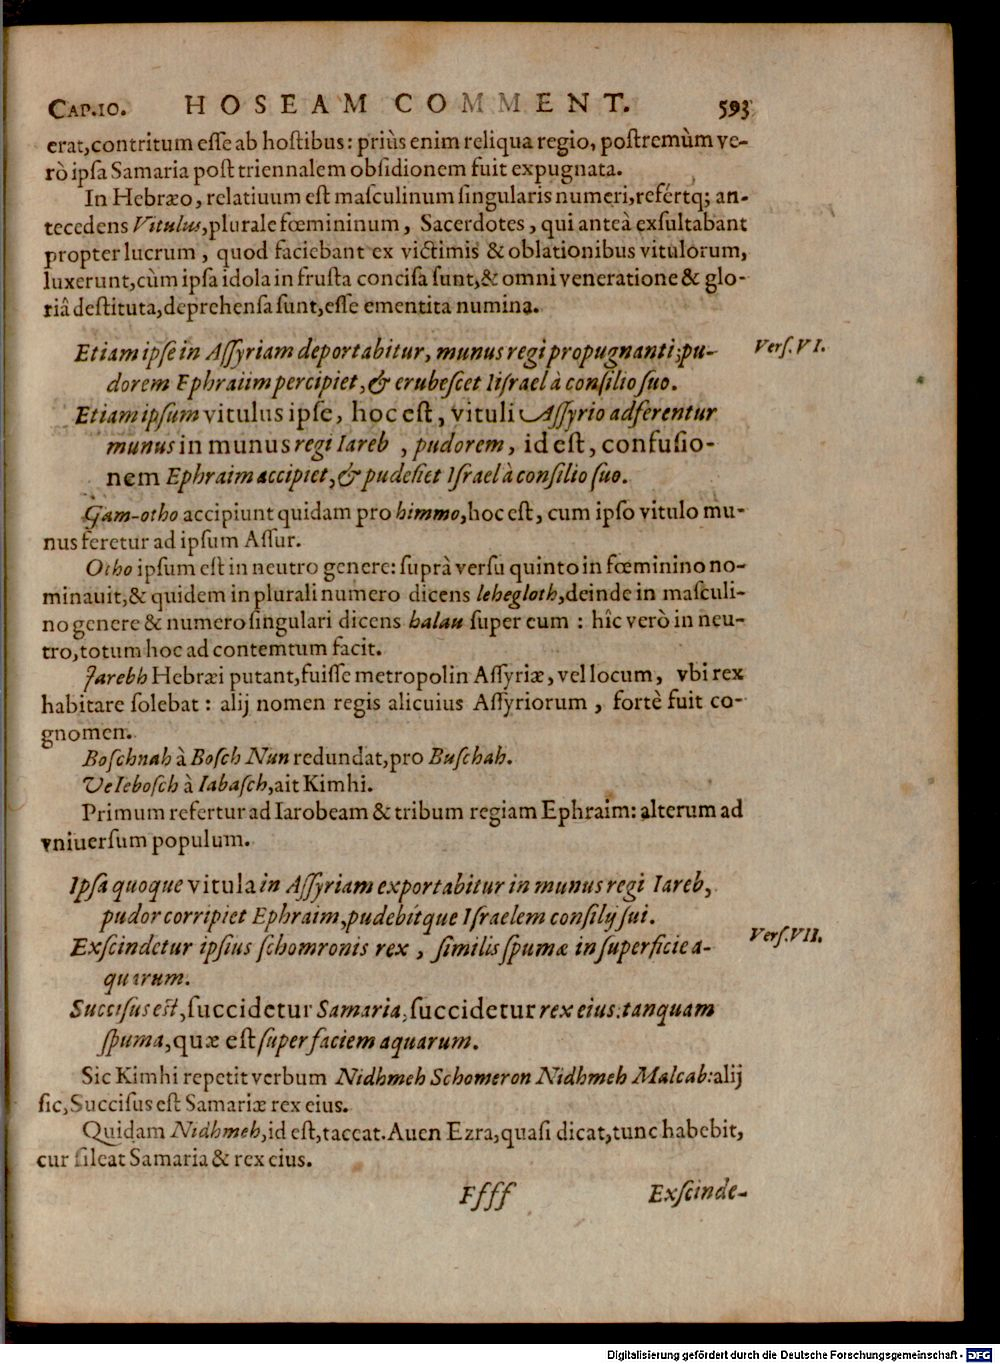 CAP.10. HOSEAM COMMENT. 593
erat, contritum esse ab hostibus: priùs enim reliqua regio, postremùm ve-
rò ipsa Samaria post triennalem obsidionem fuit expugnata.
In Hebræo, relatiuum est masculinum singularis numeri, refértq; an-
tecedens Vitulus, plurale fœmininum, Sacerdotes, qui anteà exsultabant
propter lucrum, quod faciebant ex victimis & oblationibus vitulorum,
luxerunt, cùm ipsa idola in frusta concisa sunt, & omni veneratione & glo-
riâ destituta, deprehensa sunt, esse ementita numina.
Etiam ipse in Assyriam deportabitur, munus regi propugnanti; pu- Vers. VI.
dorem Ephraiim percipiet, & erubescet Iisrael à consilio suo.
Etiam ipsum vitulus ipse, hoc est, vituli Assyrio adferentur
munus in munus regi Iareb, pudorem, id est, confusio-
nem Ephraim accipiet, & pudefiet Israel à consilio suo.
Gam-otho accipiunt quidam pro himmo, hoc est, cum ipso vitulo mu-
nus feretur ad ipsum Assur.
Otho ipsum est in neutro genere: suprà versu quinto in fœminino no-
minauit, & quidem in plurali numero dicens lehegloth, deinde in masculi-
no genere & numero singulari dicens halau super eum: hîc verò in neu-
tro, totum hoc ad contemtum facit.
Jarebh Hebræi putant, fuisse metropolin Assyriæ, vel locum, vbi rex
habitare solebat: alij nomen regis alicuius Assyriorum, fortè fuit co-
gnomen.
Boschnah à Bosch Nun redundat, pro Buschah.
VeIebosch à Iabasch, ait Kimhi.
Primum refertur ad Iarobeam & tribum regiam Ephraim: alterum ad
vniuersum populum.
Ipsa quoque vitula in Assyriam exportabitur in munus regi Iareb,
pudor corripiet Ephraim, pudebítque Israelem consilij sui.
Exscindetur ipsius schomronis rex, similis spumæ in superficie a- Vers. VII.
quarum.
Succisus est, succidetur Samaria, succidetur rex eius: tanquam
spuma, quæ est super faciem aquarum.
Sic Kimhi repetit verbum Nidhmeh Schomeron Nidhmeh Malcab: alij
sic, Succisus est Samariæ rex eius.
Quidam Nidhmeh, id est, taceat. Auen Ezra, quasi dicat, tunc habebit,
cur sileat Samaria & rex eius.
Ffff Exscinde-
Digitalisierung gefördert durch die Deutsche Forschungsgemeinschaft - DFG